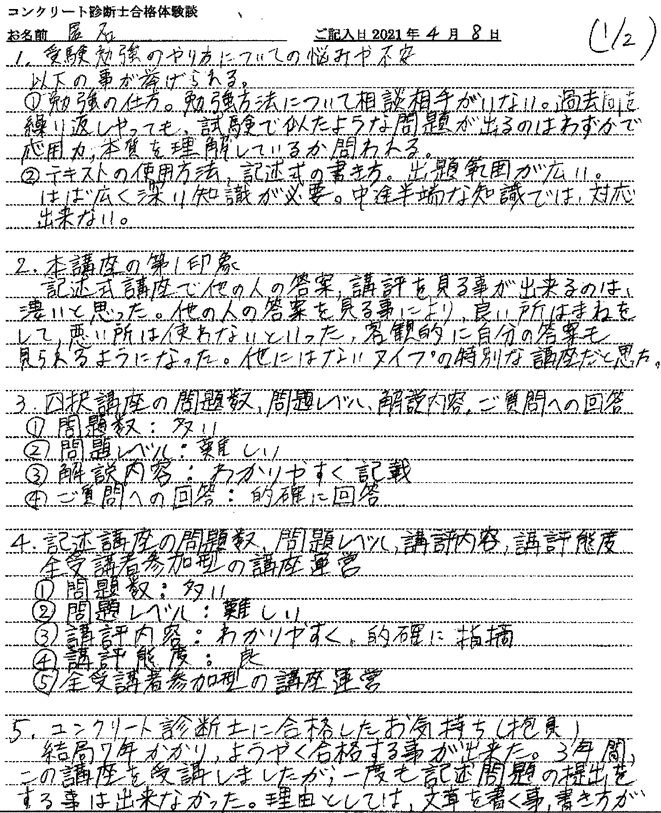 コンクリート診断士合格体験談
お名前 匿名 ご記入日 2021年 4月 8日
(1/2)
1. 受験勉強のやり方についての悩みや不安
以下の事が挙げられる。
①勉強の仕方。勉強方法について相談相手がいない。過去問を
繰り返しやっても、試験で似たような問題が出るのはわずかで
応用力、本質を理解しているか問われる。
②テキストの使用方法、記述式の書き方。出題範囲が広い。
はば広く深い知識が必要。中途半端な知識では、対応
出来ない。
2. 本講座の第1印象
記述式講座で他の人の答案、講評を見る事が出来るのは、
凄いと思った。他の人の答案を見る事により、良い所はまねを
して、悪い所は使わないといった、客観的に自分の答案も
見られるようになった。他にはないタイプの特別な講座だと思った。
3. 四択講座の問題数、問題レベル、解説内容、ご質問への回答
① 問題数：多い
② 問題レベル：難しい
③ 解説内容：わかりやすく記載
④ ご質問への回答：的確に回答
4. 記述講座の問題数、問題レベル、講評内容、講評態度
全受講者参加型の講座運営
① 問題数：多い
② 問題レベル：難しい
③ 講評内容：わかりやすく、的確に指摘
④ 講評態度：良
⑤ 全受講者参加型の講座運営
5. コンクリート診断士に合格したお気持ち(抱負)
結局7年かかり、ようやく合格する事が出来た。3年間、
この講座を受講しましたが、一度も記述問題の提出を
する事は出来なかった。理由としては、文章を書く事、書き方が